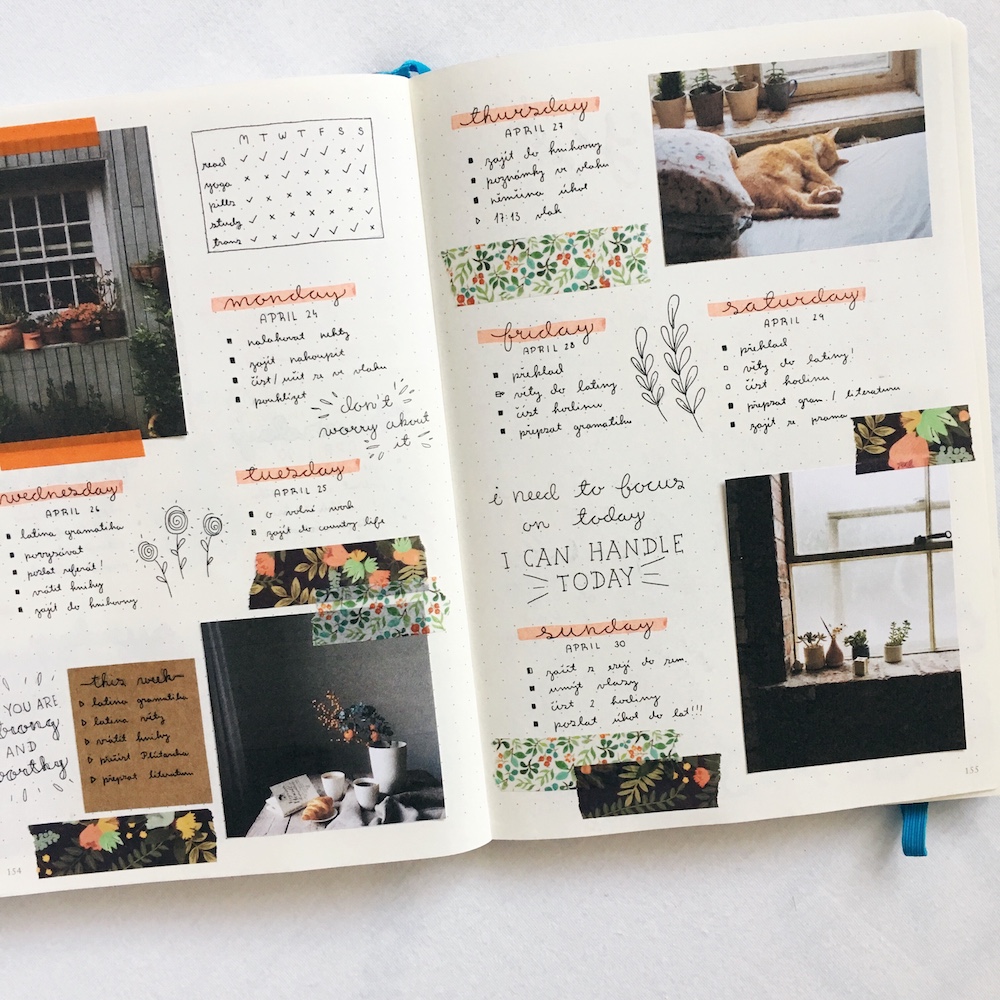 M T W T F S S
read ✓ ✓ ✓ ✓ ✓ × ✓
yoga × × ✓ × × ✓ ✓
pills ✓ × × × × × ×
study ✓ × × × × × ✓
trans ✓ ✓ ✓ ✓ ✓ ✓ ×
monday
APRIL 24
nalakovat nehty
zajít nakoupit
číst/učit se ve vlaku
pouklízet
don't
worry about
it
tuesday
APRIL 25
zajít do country life
wednesday
APRIL 26
latina gramatika
povysávat
poslat referát!
vrátit knihy
zajít do knihovny
YOU ARE
strong
AND
worthy
this week
latina gramatika
latina věty
vrátit knihy
Plútarcha
přepsat literaturu
154
thursday
APRIL 27
zajít do knihovny
poznámky ve vlaku
němčina úkol
17:13 vlak
friday
APRIL 28
překlad
věty do latiny
číst hodinu
přepsat gramatiku
saturday
APRIL 29
překlad
věty do latiny!
číst hodinu
přepsat gram./literaturu
zajít se
i need to focus
on today
I CAN HANDLE
TODAY
sunday
APRIL 30
začít z esejí do sem.
umýt vlasy
číst 2 hodiny
poslat úkol do lat!!!
155